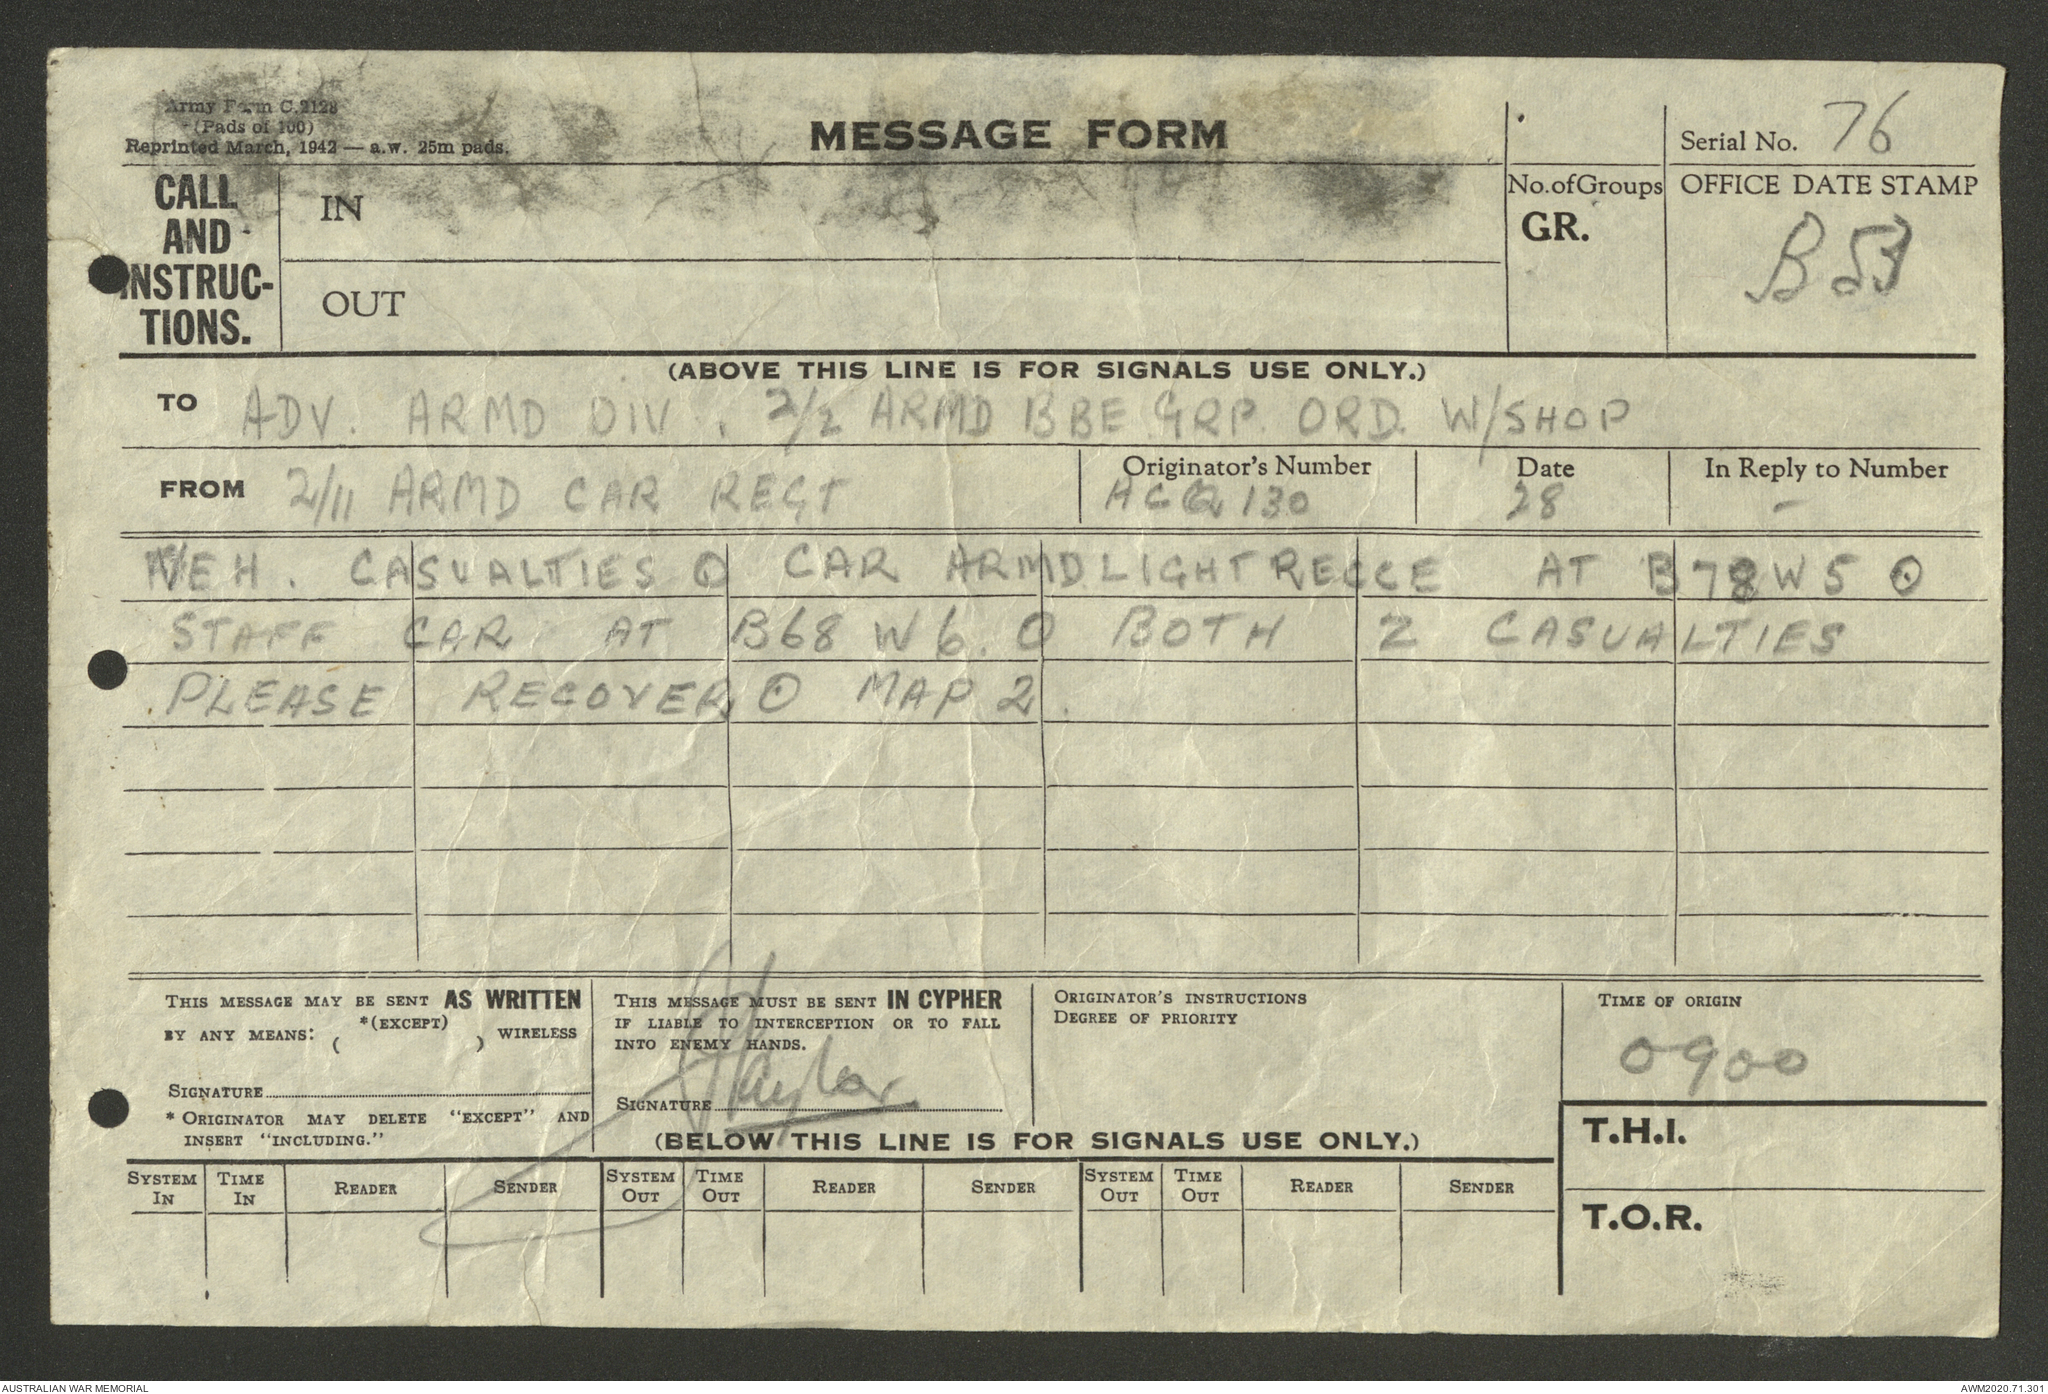 Army Form C.2128
(Pads of 100)
Reprinted March, 1942 — a.w. 25m pads.
MESSAGE FORM
Serial No. 76
CALL AND INSTRUC- TIONS.
IN
No. of Groups
GR.
OFFICE DATE STAMP
B 53
OUT
(ABOVE THIS LINE IS FOR SIGNALS USE ONLY.)
TO ADV. ARMD DIV. 2/2 ARMD BDE GRP. ORD. W/SHOP
FROM 2/11 ARMD CAR REGT
Originator's Number ACQ 130
Date 28
In Reply to Number –
VEH. CASUALTIES ⊙ CAR ARMD. LIGHT RECCE AT B78W5 ⊙
STAFF CAR AT B68 W6. O BOTH 2 CASUALTIES
PLEASE RECOVER ⊙ MAP 2.
THIS MESSAGE MAY BE SENT AS WRITTEN
BY ANY MEANS: ( *(EXCEPT) ) WIRELESS
SIGNATURE
* ORIGINATOR MAY DELETE "EXCEPT" AND
INSERT "INCLUDING."
THIS MESSAGE MUST BE SENT IN CYPHER
IF LIABLE TO INTERCEPTION OR TO FALL
INTO ENEMY HANDS.
SIGNATURE
ORIGINATOR'S INSTRUCTIONS
DEGREE OF PRIORITY
TIME OF ORIGIN
0900
(BELOW THIS LINE IS FOR SIGNALS USE ONLY.)
T.H.I.
T.O.R.
SYSTEM IN TIME IN READER SENDER SYSTEM OUT TIME OUT READER SENDER SYSTEM OUT TIME OUT READER SENDER
AUSTRALIAN WAR MEMORIAL
AWM2020.71.301